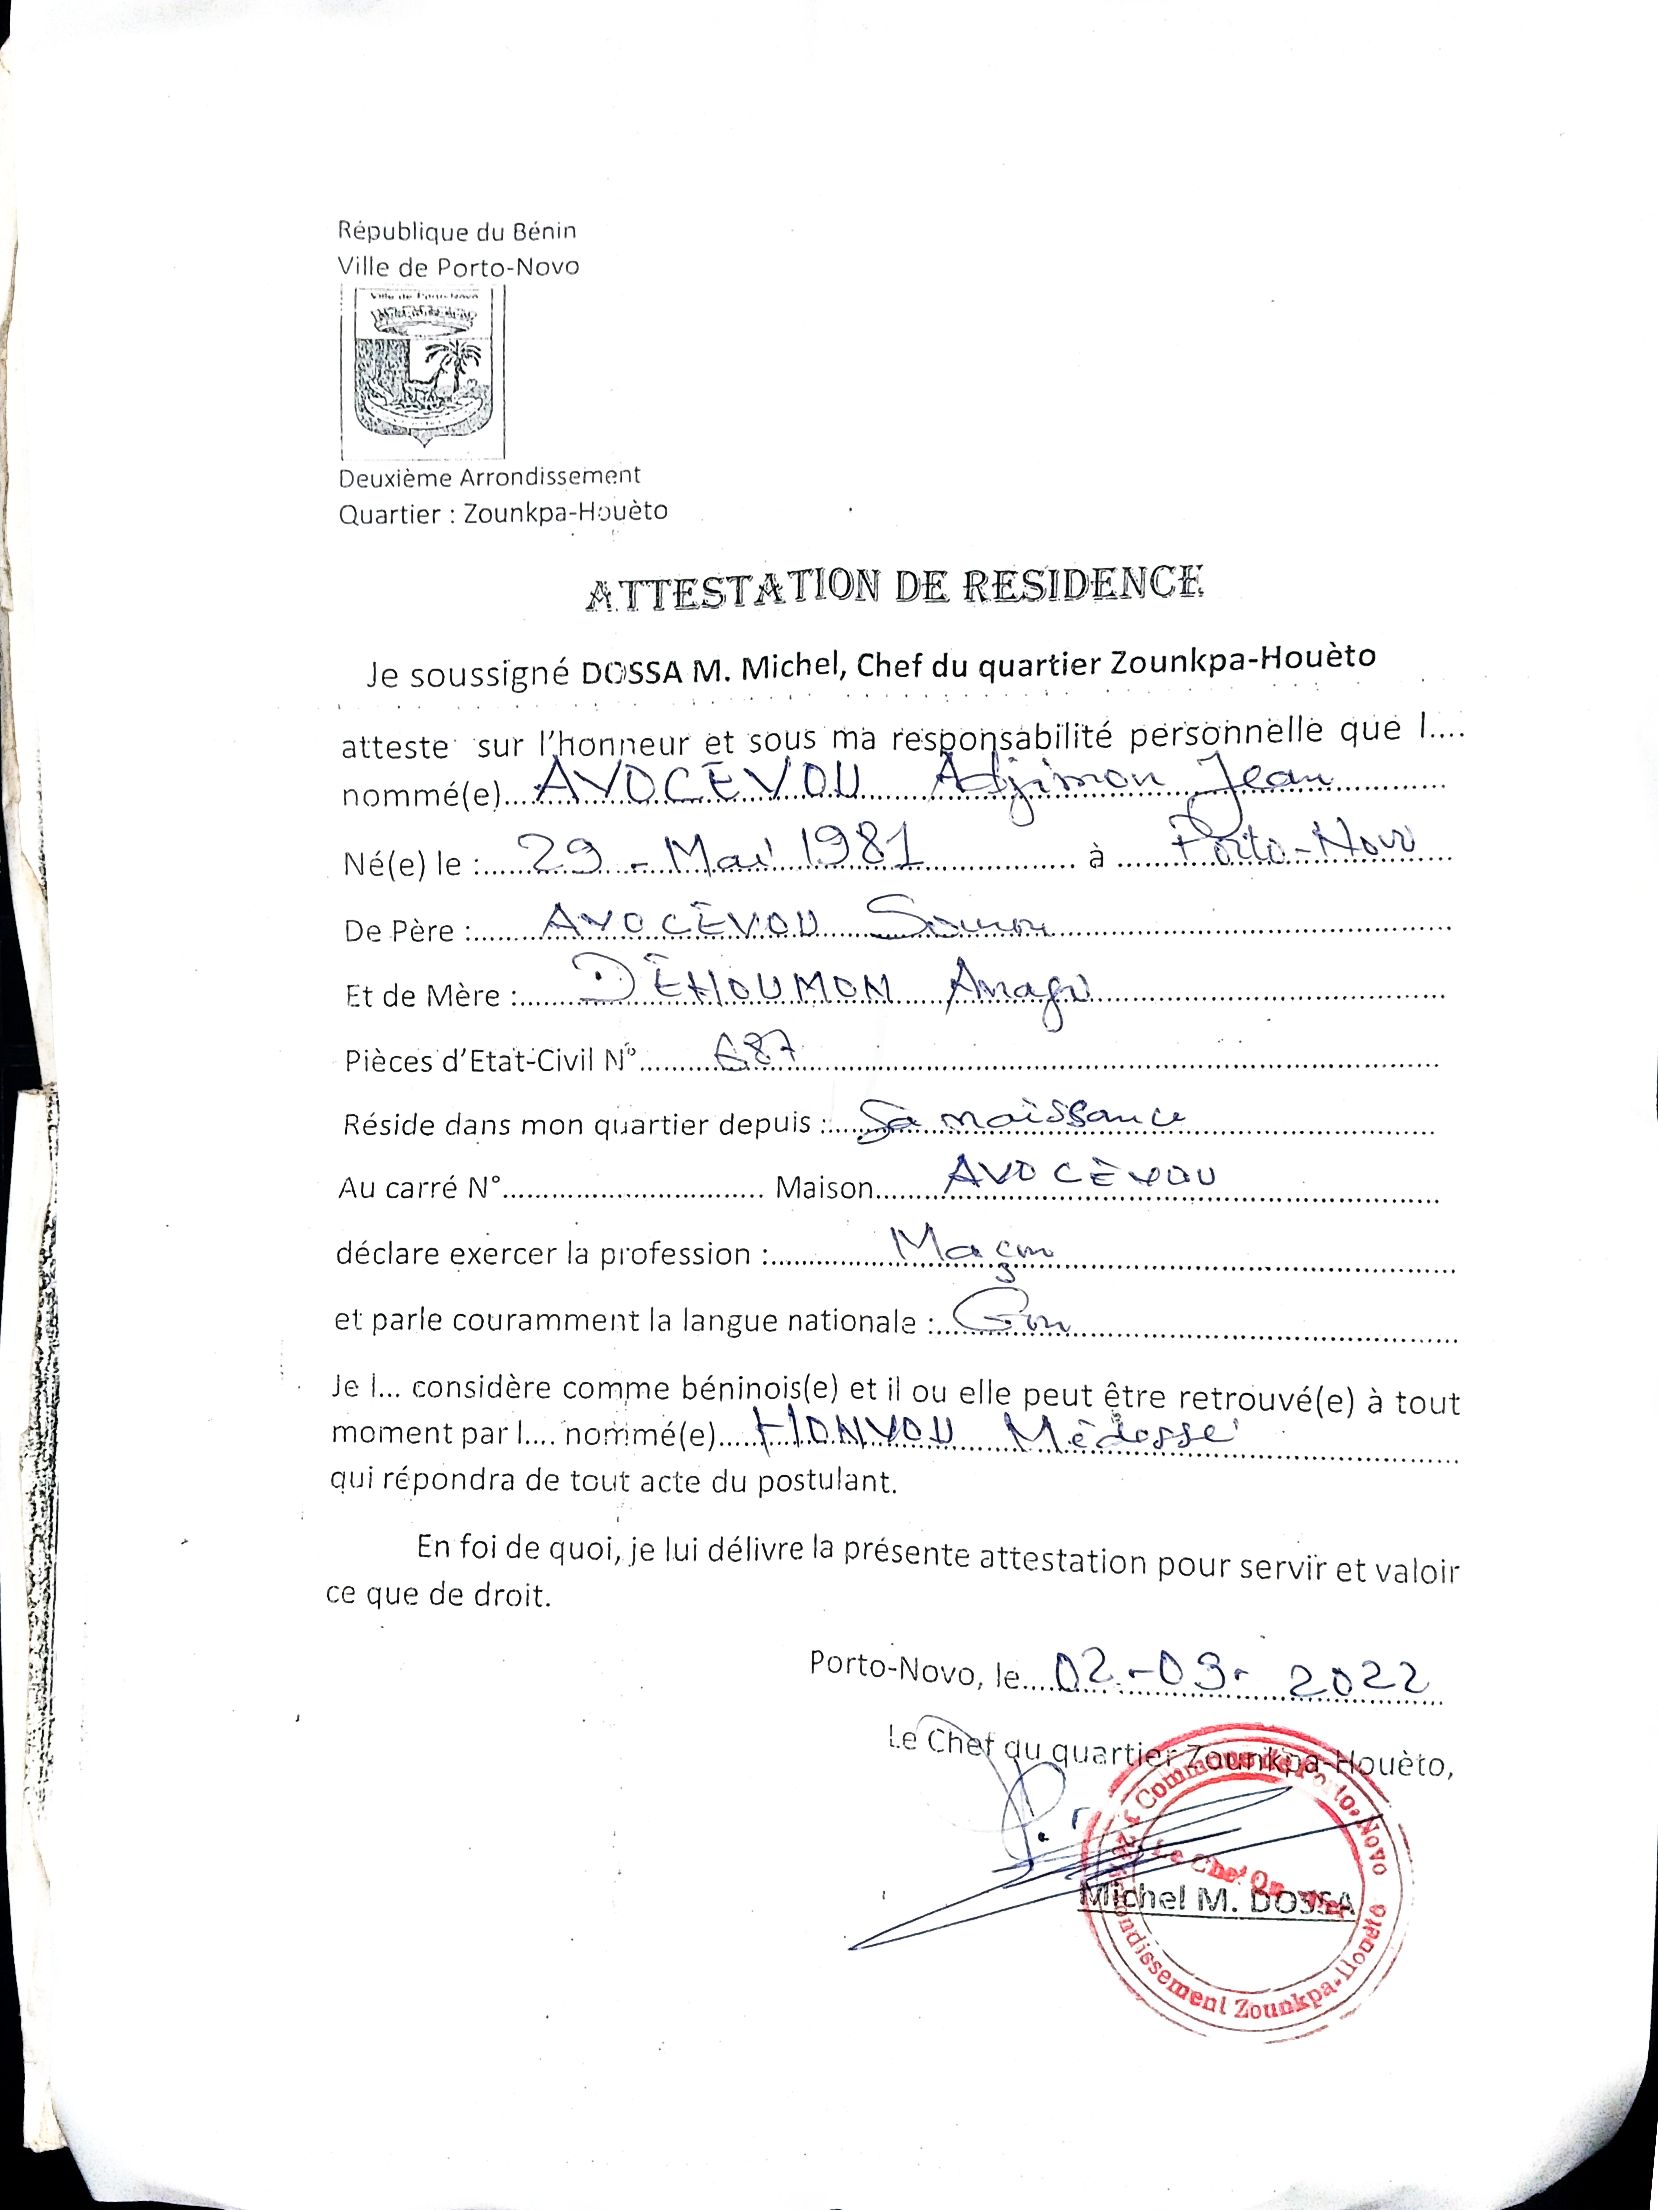 République du Bénin
Ville de Porto-Novo
Ville de Porto-Novo
Deuxième Arrondissement
Quartier : Zounkpa-Houèto
ATTESTATION DE RESIDENCE
Je soussigné DOSSA M. Michel, Chef du quartier Zounkpa-Houèto
atteste sur l'honneur et sous ma responsabilité personnelle que l....
nommé(e)....AVOCÈVOU Adjimon Jean
Né(e) le : 29 - Mai 1981 à Porto-Novo
De Père : AVOCÈVOU
Et de Mère : DÈHOUMON Anago
Pièces d'Etat-Civil N° 687
Réside dans mon quartier depuis : Sa naissance
Au carré N°.............................. Maison AVOCÈVOU
déclare exercer la profession : Maçon
et parle couramment la langue nationale : Gun
Je l... considère comme béninois(e) et il ou elle peut être retrouvé(e) à tout
moment par l.... nommé(e) HONVOU Médossé
qui répondra de tout acte du postulant.
En foi de quoi, je lui délivre la présente attestation pour servir et valoir
ce que de droit.
Porto-Novo, le 02-03-2022
Le Chef du quartier Zounkpa-Houèto,
Commune de Porto-Novo
Le Chef Quartier
Michel M. DOSSA
Arrondissement Zounkpa-Houèto